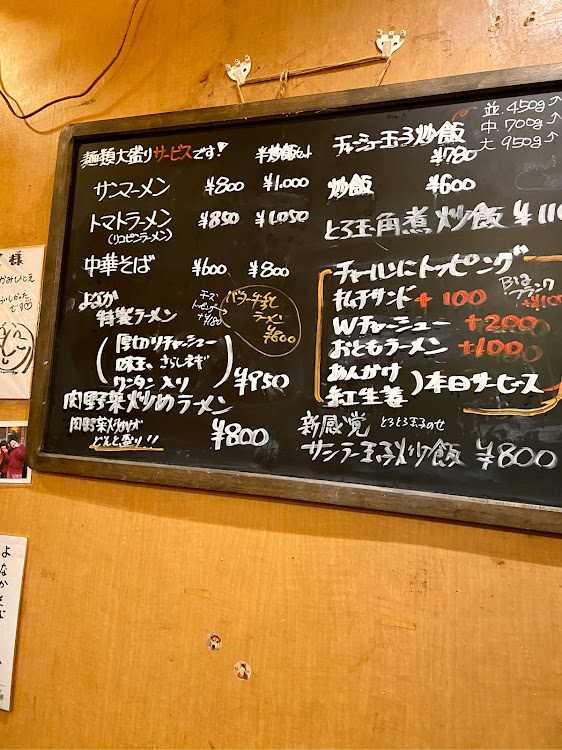 麺類大盛りサービスです! 半炒飯セット
サンマーメン ¥800 ¥1.000
トマトラーメン ¥850 ¥1.050
(リコピンラーメン)
中華そば ¥600 ¥800
よなか
特製ラーメン
厚切りチャーシュー
味玉、さらしネギ
ワンタン入り ¥950
チーズ
トッピング
バターチーズ
ラーメン
¥800
肉野菜炒めラーメン
肉野菜炒めが
どんと盛り!! ¥800
チャーシュー玉子炒飯
¥780
並.450g↑
中.700g↑
大.950g↑
炒飯 ¥600
とろ玉角煮炒飯 ¥110
チャーハンにトッピング
キムチサンド +100
Wチャーシュー +200
おともラーメン +100
あんかけ
紅生姜
本日サービス
新感覚 とろとろ玉子のせ
サンラー玉子炒飯 ¥800
様
かみひとえ
です
よなかそば